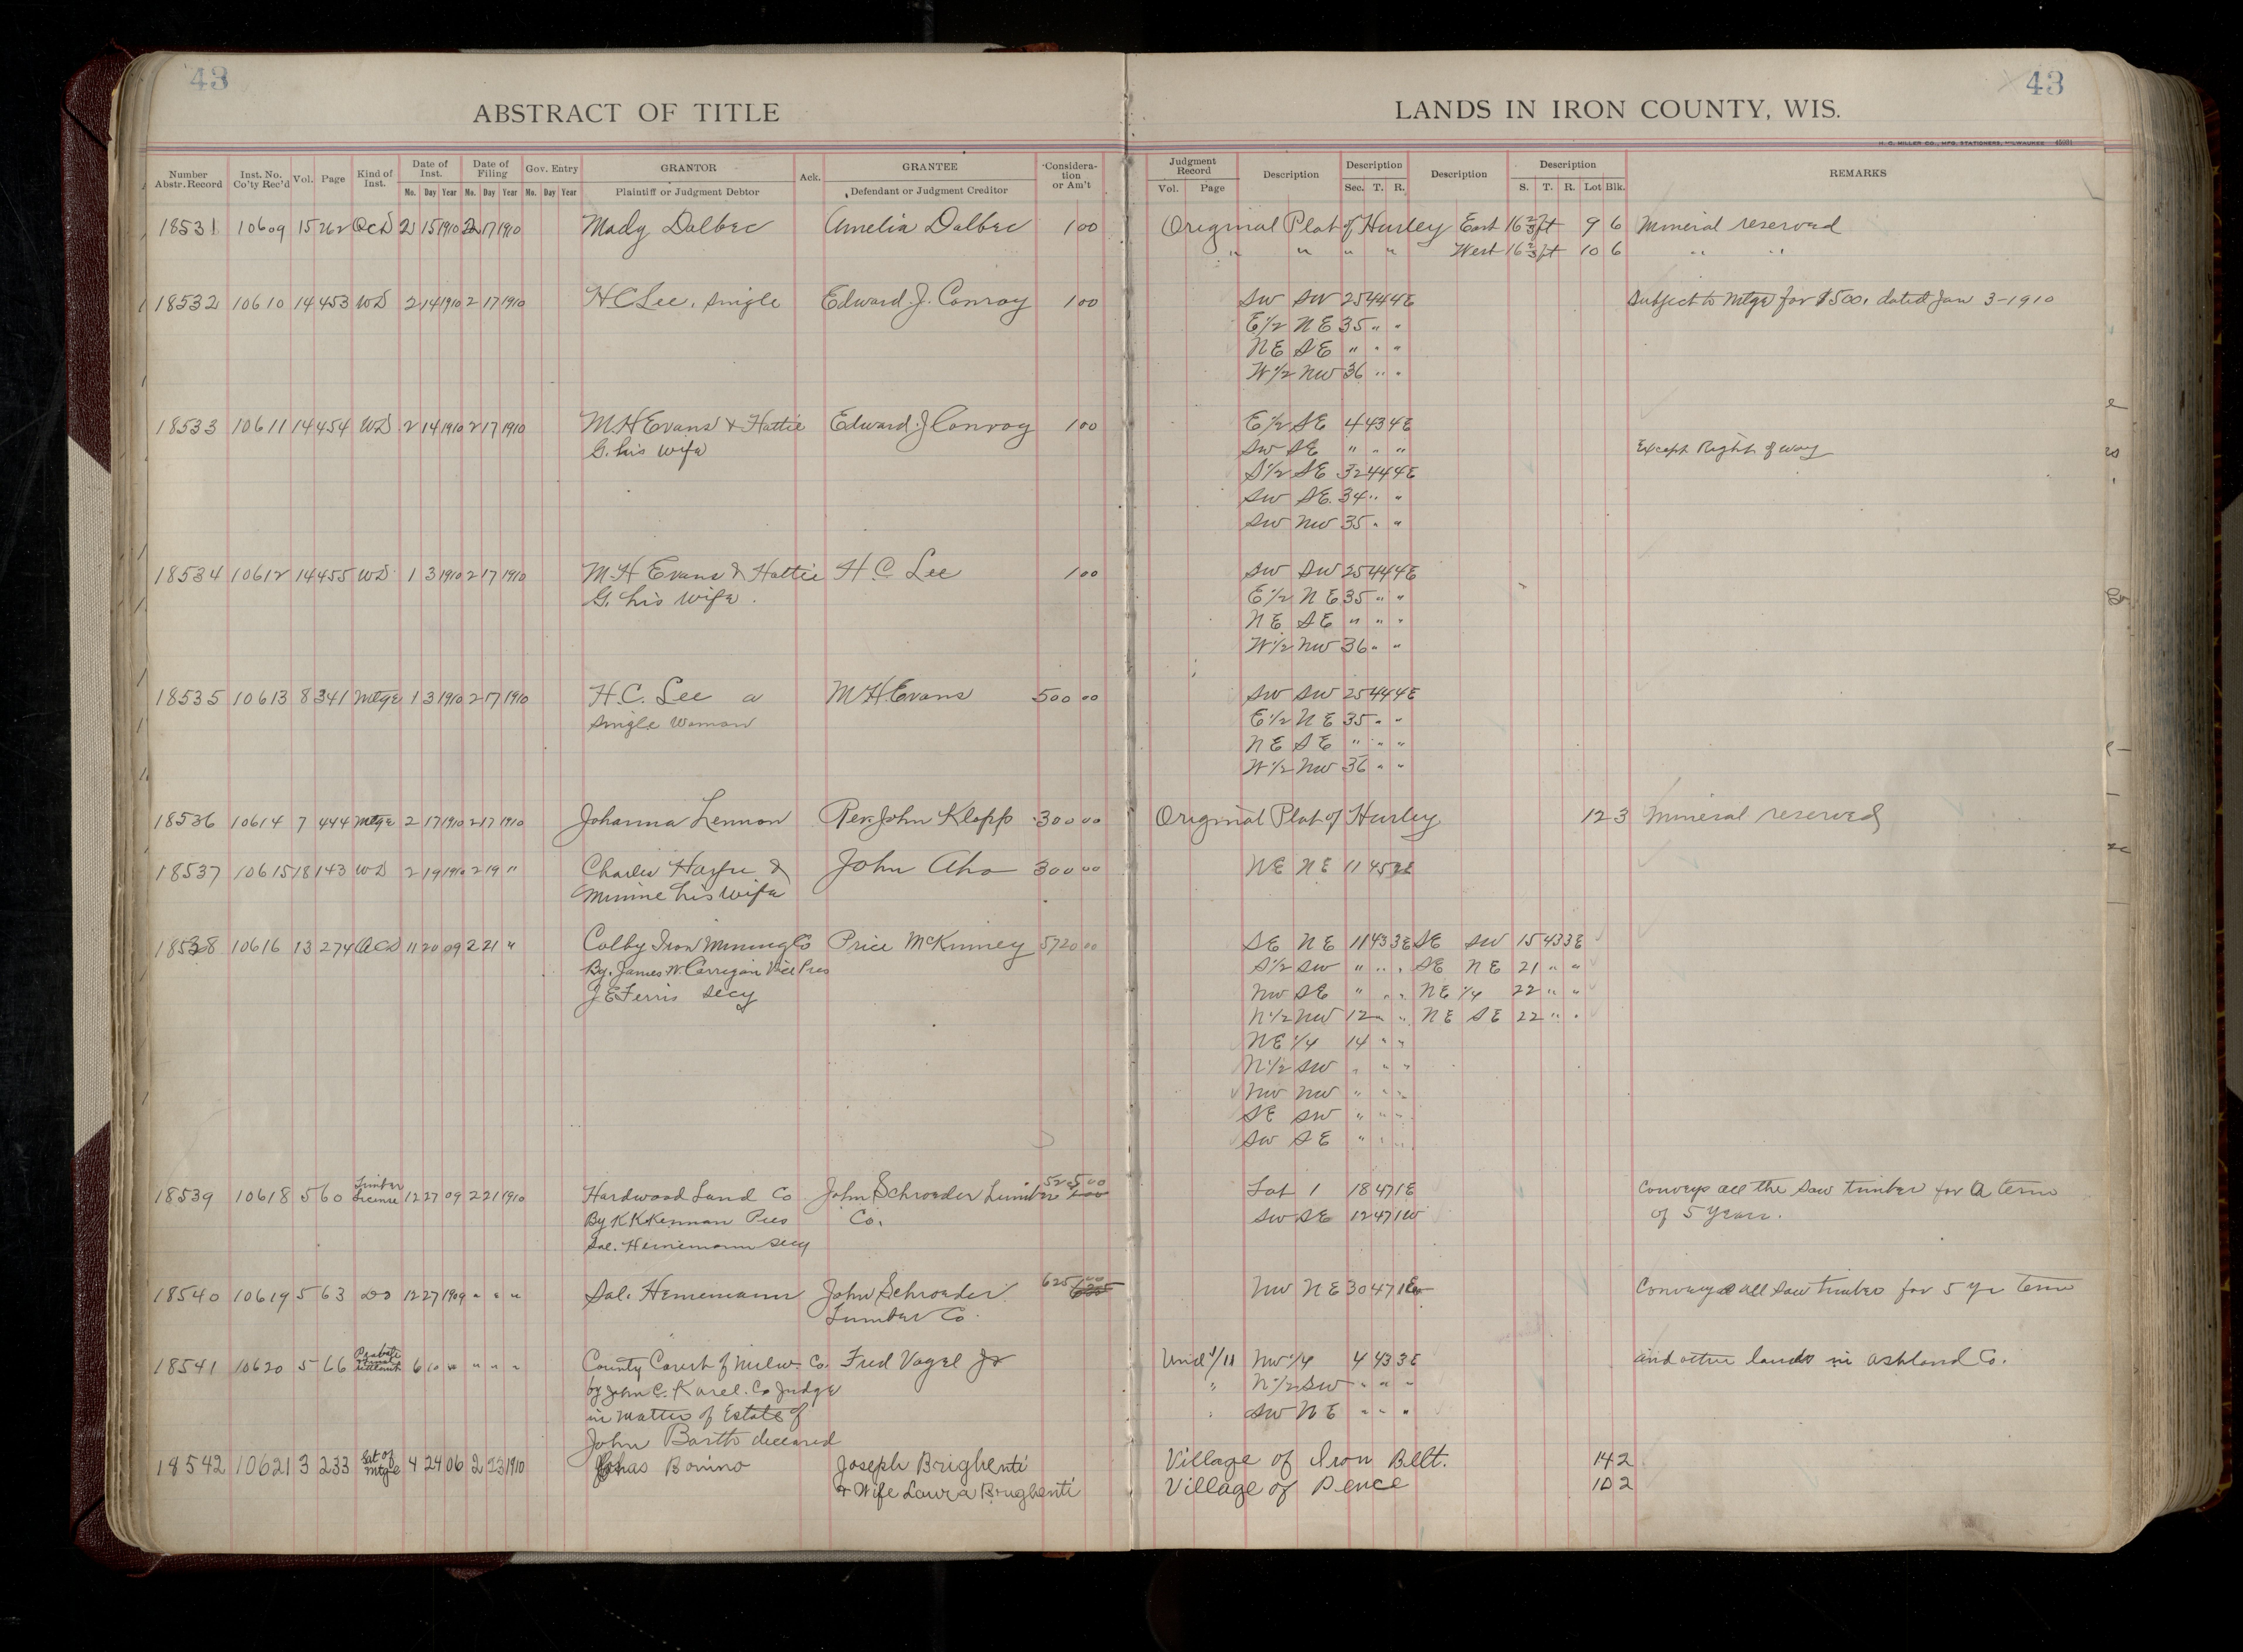 43
43
ABSTRACT OF TITLE
LANDS IN IRON COUNTY, WIS.
H. C. MILLER CO., MFG. STATIONERS, MILWAUKEE
Number Abstr. Record Inst. No. Co'ty Rec'd Vol. Page Kind of Inst. Date of Inst. Date of Filing Gov. Entry GRANTOR Ack. GRANTEE Considera-tion or Am't Judgment Record Description Description Description Description REMARKS
No. Day Year No. Day Year No. Day Year Plaintiff or Judgment Debtor Defendant or Judgment Creditor Vol. Page Sec. T. R. S. T. R. Lot Blk.
18531 10609 15 262 QCD 2 15 1910 2 17 1910 Mady Dalbec Amelia Dalbec 1 00 Original Plat of Hurley East 16 2/3 ft 9 6 Mineral reserved
" " " " West 16 2/3 ft 10 6 " "
18532 10610 14 453 WD 2 14 1910 2 17 1910 H C Lee, single Edward J. Conroy 1 00 SW SW 25 44 4E Subject to Mtge for $500. dated Jan 3-1910
E 1/2 NE 35 " "
NE SE " " "
W 1/2 NW 36 " "
18533 10611 14 454 WD 2 14 1910 2 17 1910 M H Evans & Hattie Edward J Conroy 1 00 E 1/2 SE 4 43 4E
G. his wife SW SE " " " Except Right of way
S 1/2 SE 32 44 4E
SW SE 34 " "
SW NW 35 " "
18534 10612 14 455 WD 1 3 1910 2 17 1910 M H Evans & Hattie H. C. Lee 1 00 SW SW 25 44 4E
G. his wife. E 1/2 NE 35 " "
NE SE " " "
W 1/2 NW 36 " "
18535 10613 8 341 Mtge 1 3 1910 2 17 1910 H. C. Lee a M H Evans 500 00 SW SW 25 44 4E
single woman E 1/2 NE 35 " "
NE SE " " "
W 1/2 NW 36 " "
18536 10614 7 444 Mtge 2 17 1910 2 17 1910 Johanna Lennon Rev. John Klopp 300 00 Original Plat of Hurley 12 3 Mineral reserved
18537 10615 18 143 WD 2 19 1910 2 19 " Charles &  John Aho 300 00 NE NE 11 45
Minnie his wife
18538 10616 13 274 QCD 11 20 09 2 21 " Colby Iron Mining Co Price McKinney 5720 00 SE NE 11 43 3E SE SW 15 43 3E
By. James W. Corrigan Vice Pres S 1/2 SW " " " SE NE 21 " "
J E Ferris Secy NW SE " " " NE 1/4 22 " "
N 1/2 NW 12 " " NE SE 22 " "
NE 1/4 14 " "
N 1/2 SW " " "
NW NW " " "
SE SW " " "
SW SE " " "
18539 10618 5 60 Timber License 12 27 09 2 21 1910 Hardwood Land Co John Schroeder Lumber Lot 1 18 47 1E Conveys all the Saw timber for a term
By K K Kennan Pres Co. SW SE 12 47 1W of 5 years.
Sol. Heinemann Secy
18540 10619 5 63 Do 12 27 1909 " " " Sol. Heinemann John Schroeder 625 00 NW NE 30 47 Conveys all saw timber for 5 yr term
Lumber Co.
18541 10620 5 66 6 10 County Court of Milw. Co. Fred Vogel Jr Und 1/11 NW 1/4 4 43 3E and other lands in Ashland Co.
by John C. Karel. Co Judge " N 1/2 SW " " "
in matter of Estate of " SW NE " " "
John Barth deceased
18542 10621 3 233 Sat of Mtge 4 24 06 2 23 1910 Bonino Joseph Brighenti Village of Iron Belt. 14 2
& Wife Laura Brughenti Village of Pence 10 2